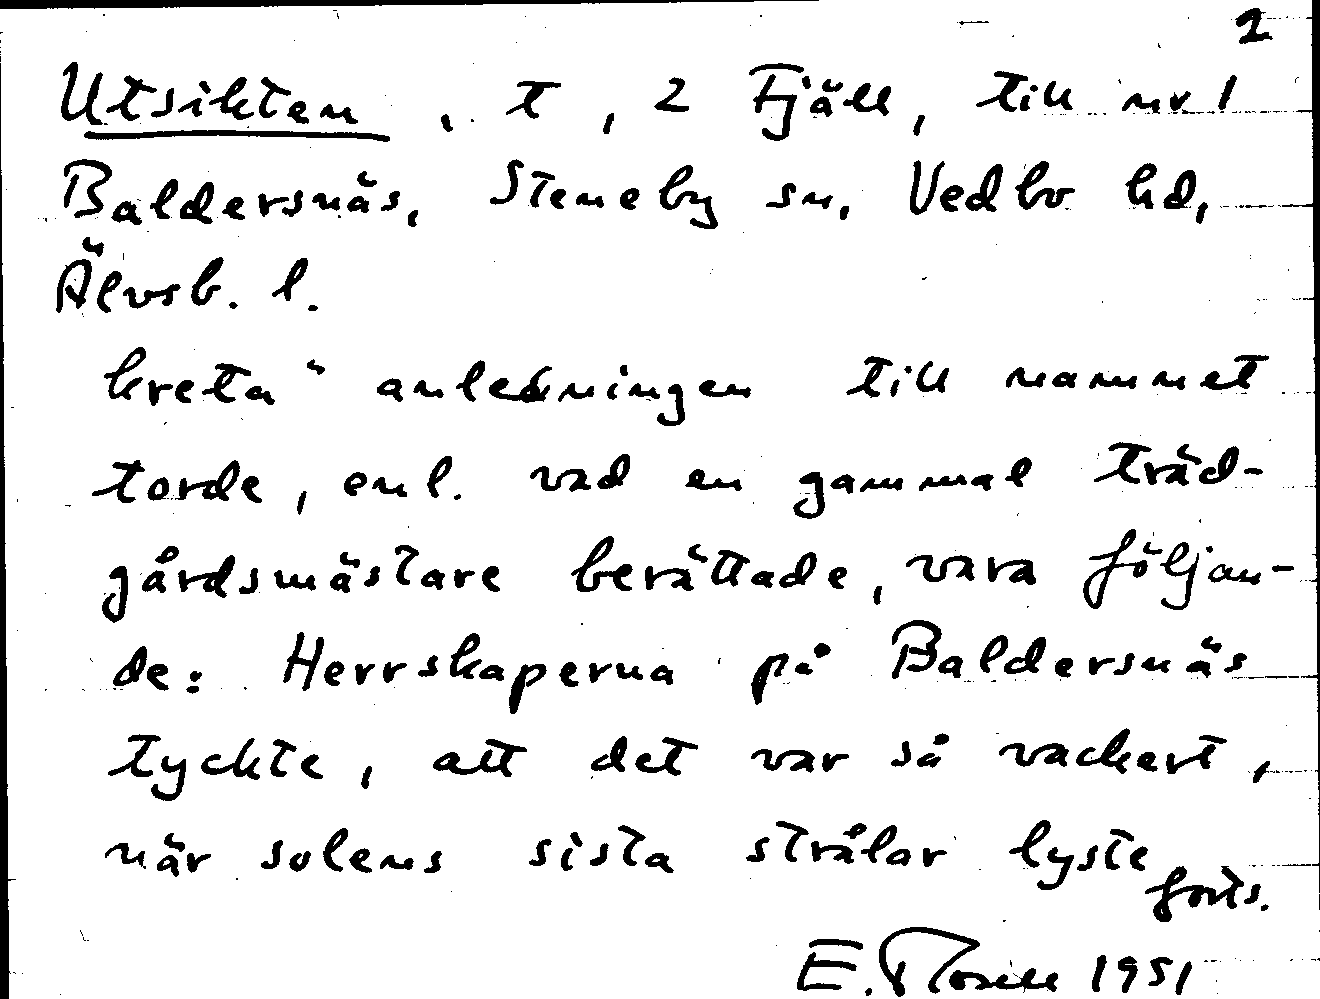 2
Utsikten, t, 2 Fjäll, till nr 1
Baldersnäs, Steneby sn, Vedbo hd,
Älvsb. l.
kreta" anledningen till namnet
torde, enl. vad en gammal träd-
gårdsmästare berättade, vara följan-
de: Herrskaperna på Baldersnäs
tyckte, att det var så vackert,
när solens sista strålar lyste
forts.
E. 1951